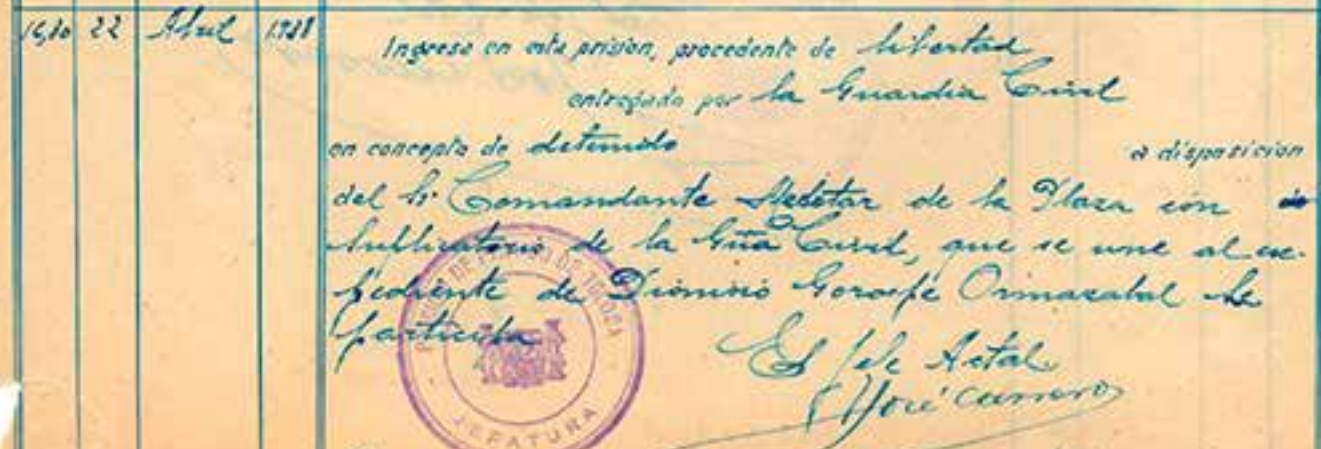 22 Abril
Ingresa en esta prision, procedente de libertad
entregado por la Guardia Civil
en concepto de detenido a disposicion
del Sr. Comandante Militar de la Plaza con
Suplicatorio de la Gûa Civil, que se une al ex-
pediente de Dionisio Gorospe Ormazabal Se
participa
El Jefe Actal
José
JEFATURA